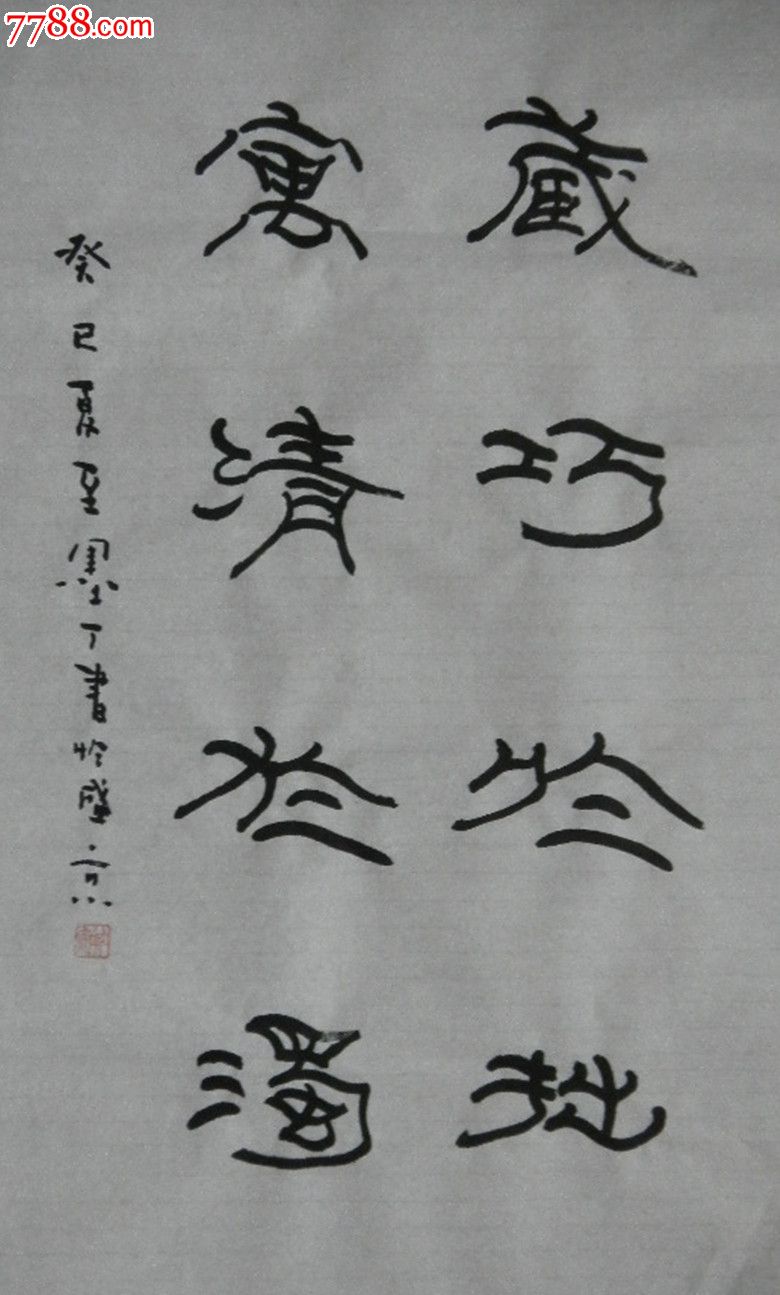 7788.com
藏巧於拙
寓清於濁
癸巳夏至墨丁書於盛京